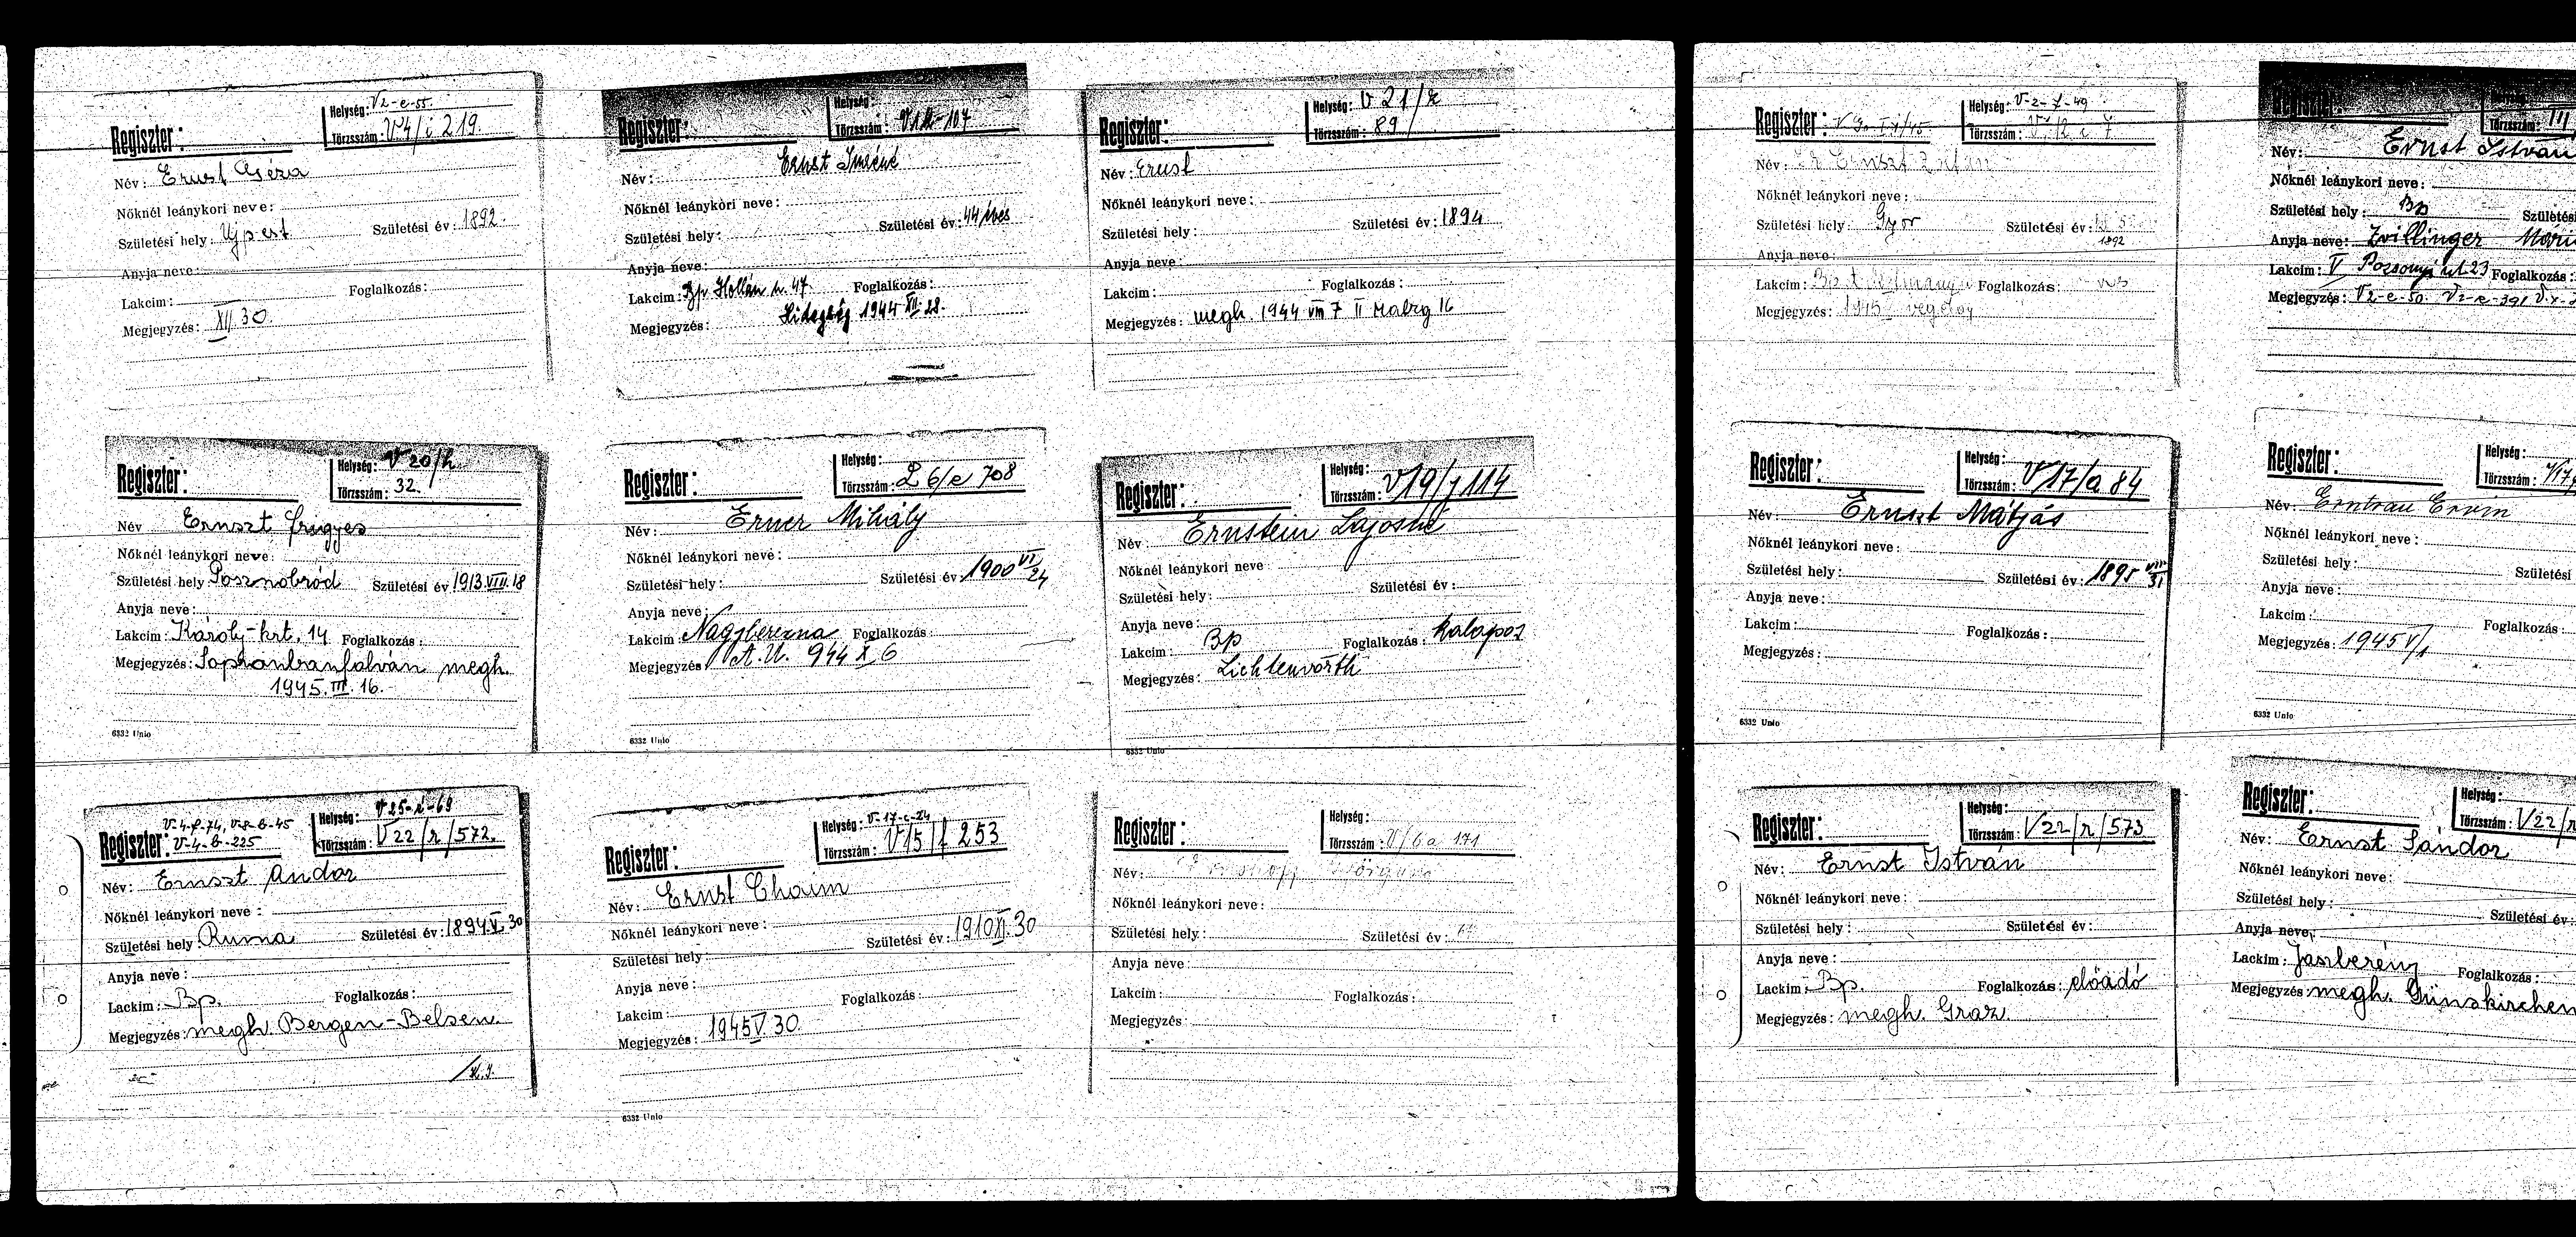 Regiszter:
Helység: V2-e-55.
Törzsszám: V4/i 219.
Név: Ernst Géza
Nőknél leánykori neve:
Születési hely: Ujpest Születési év: 1892.
Anyja neve:
Lakcim: Foglalkozás:
Megjegyzés: XII 30.
Regiszter:
Helység:
Törzsszám:
Név: Ernst Imréné
Nőknél leánykori neve:
Születési hely: Születési év: 44 éves
Anyja neve:
Lakcim: Bp. Hollán u. 47. Foglalkozás:
Megjegyzés: Hidegség 1944 XII 28.
Regiszter:
Helység: V 21/
Törzsszám: 89
Név: Ernst
Nőknél leánykori neve:
Születési hely: Születési év: 1894
Anyja neve:
Lakcim: Foglalkozás:
Megjegyzés: megh. 1944 VIII 7 II 16
Regiszter:
Helység: V-2-f-49
Törzsszám:
Név: Ernszt
Nőknél leánykori neve:
Születési hely: Győr Születési év: 1892
Anyja neve:
Lakcim: Foglalkozás:
Megjegyzés: 1945
Regiszter:
Törzsszám: III
Név: Ernst István
Nőknél leánykori neve:
Születési hely: Bp
Anyja neve: Zvillinger
Lakcim: V Pozsonyi ut 23 Foglalkozás:
Megjegyzés: V2-e-50. V2-e-391
Regiszter:
Helység: V 20/h
Törzsszám: 32.
Név Ernszt Frigyes
Nőknél leánykori neve:
Születési hely Posznobród Születési év 1913.VIII.18
Anyja neve:
Lakcim: Károly-krt. 14. Foglalkozás:
Megjegyzés: Sopronbánfalván megh.
1945.III.16.
6332 Unio
Regiszter:
Helység:
Törzsszám: L 6/e 708
Név: Erner Mihály
Nőknél leánykori neve:
Születési hely: Születési év: 1900 VI/24
Anyja neve:
Lakcim Nagyberezna Foglalkozás:
Megjegyzés A.U. 944 X 6
6332 Unio
Regiszter:
Helység:
Törzsszám: V19/j 114
Név Ernstein Lajosné
Nőknél leánykori neve
Születési hely: Születési év:
Anyja neve:
Lakcim: Bp Foglalkozás: kalapos
Megjegyzés: Lichtenwörth
6332 Unio
Regiszter:
Helység:
Törzsszám: V17/a 84
Név: Ernszt Mátyás
Nőknél leánykori neve:
Születési hely: Születési év: 1895 VIII/31
Anyja neve:
Lakcim: Foglalkozás:
Megjegyzés:
6332 Unio
Regiszter:
Helység:
Törzsszám:
Név: Erntrau Ervin
Nőknél leánykori neve:
Születési hely: Születési
Anyja neve:
Lakcim: Foglalkozás:
Megjegyzés: 1945 V/1
6332 Unio
V-4-f-74, V-8-b-45
Regiszter: V-4-b-225
Helység:
Törzsszám: V22/r/572.
Név: Ernszt Andor
Nőknél leánykori neve:
Születési hely: Ruma Születési év: 1894.V.30
Anyja neve:
Lackim: Bp. Foglalkozás:
Megjegyzés: megh. Bergen-Belsen.
Regiszter:
Helység: V-17-c-24
Törzsszám: V15/f 253
Név: Ernst Chaim
Nőknél leánykori neve:
Születési hely: Születési év: 1910 XI.30
Anyja neve:
Lakcim: Foglalkozás:
Megjegyzés: 1945 V 30.
6332 Unio
Regiszter:
Helység:
Törzsszám: V/6a 171
Név:
Nőknél leánykori neve:
Születési hely: Születési év:
Anyja neve:
Lakcim: Foglalkozás:
Megjegyzés
Regiszter:
Helység:
Törzsszám: V22/r/573
Név: Ernst István
Nőknél leánykori neve:
Születési hely: Születési év:
Anyja neve:
Lackim: Bp. Foglalkozás: előadó
Megjegyzés: megh. Graz.
Regiszter:
Helység:
Törzsszám: V22/r
Név: Ernst Sándor
Nőknél leánykori neve:
Születési hely: Születési év:
Anyja neve:
Lackim: Jászberény Foglalkozás:
Megjegyzés: megh. Günskirchen